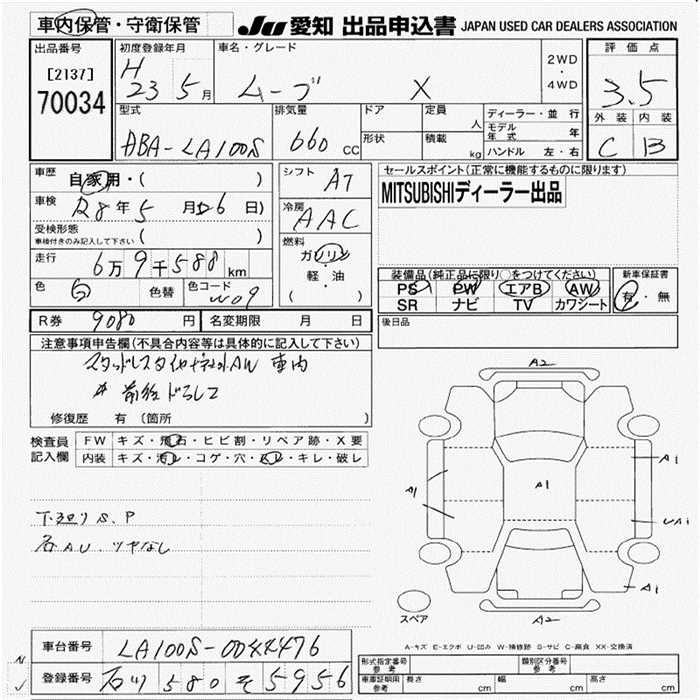 車内保管・守衛保管
JU 愛知 出品申込書 JAPAN USED CAR DEALERS ASSOCIATION
出品番号
[2137]
70034
初度登録年月
H
23 5月
車名・グレード
ムーブ X
2WD
・
4WD
評価点
3.5
外装 内装
C B
型式
ABA-LA100S
排気量
660 cc
ドア
形状
定員
人
積載
kg
ディーラー・並行
モデル
年式
年
ハンドル 左・右
車歴
自家用・( )
車検
R8年5月 6日)
受検形態
車検付きのみ記入して下さい ( )
走行
6万9千588km
色
白
色替
色コード
W09
シフト
AT
冷房
AAC
燃料
ガソリン
軽・油
( )
セールスポイント(正常に機能するものに限ります)
MITSUBISHIディーラー出品
装備品(純正品に限り○をつけてください)
PS PW エアB AW
SR ナビ TV カワシート
新車保証書
有・無
R券 9080円
名変期限 月 日
後日品
注意事項申告欄(不具合内容等は具体的に記入して下さい)
スタッドレスタイヤ AW 車内
前後ドラレコ
修復歴 有 (箇所 )
検査員
記入欄
FW キズ・飛石・ヒビ割・リペア跡・X要
内装 キズ・汚レ・コゲ・穴・スレ・キレ・破レ
下廻りS、P
各AU、ツヤなし
A2
A1
A1
A1
UA1
A1
A2
スペア
A-キズ E-エクボ U-凹み W-補修跡 S-サビ C-腐食 XX-交換済
車台番号 LA100S-0044476
登録番号 石川 580 そ 5956
形式指定番号
参考
類別区分番号
参考
車庫証明用
参考
長さ cm
幅 cm
高さ cm